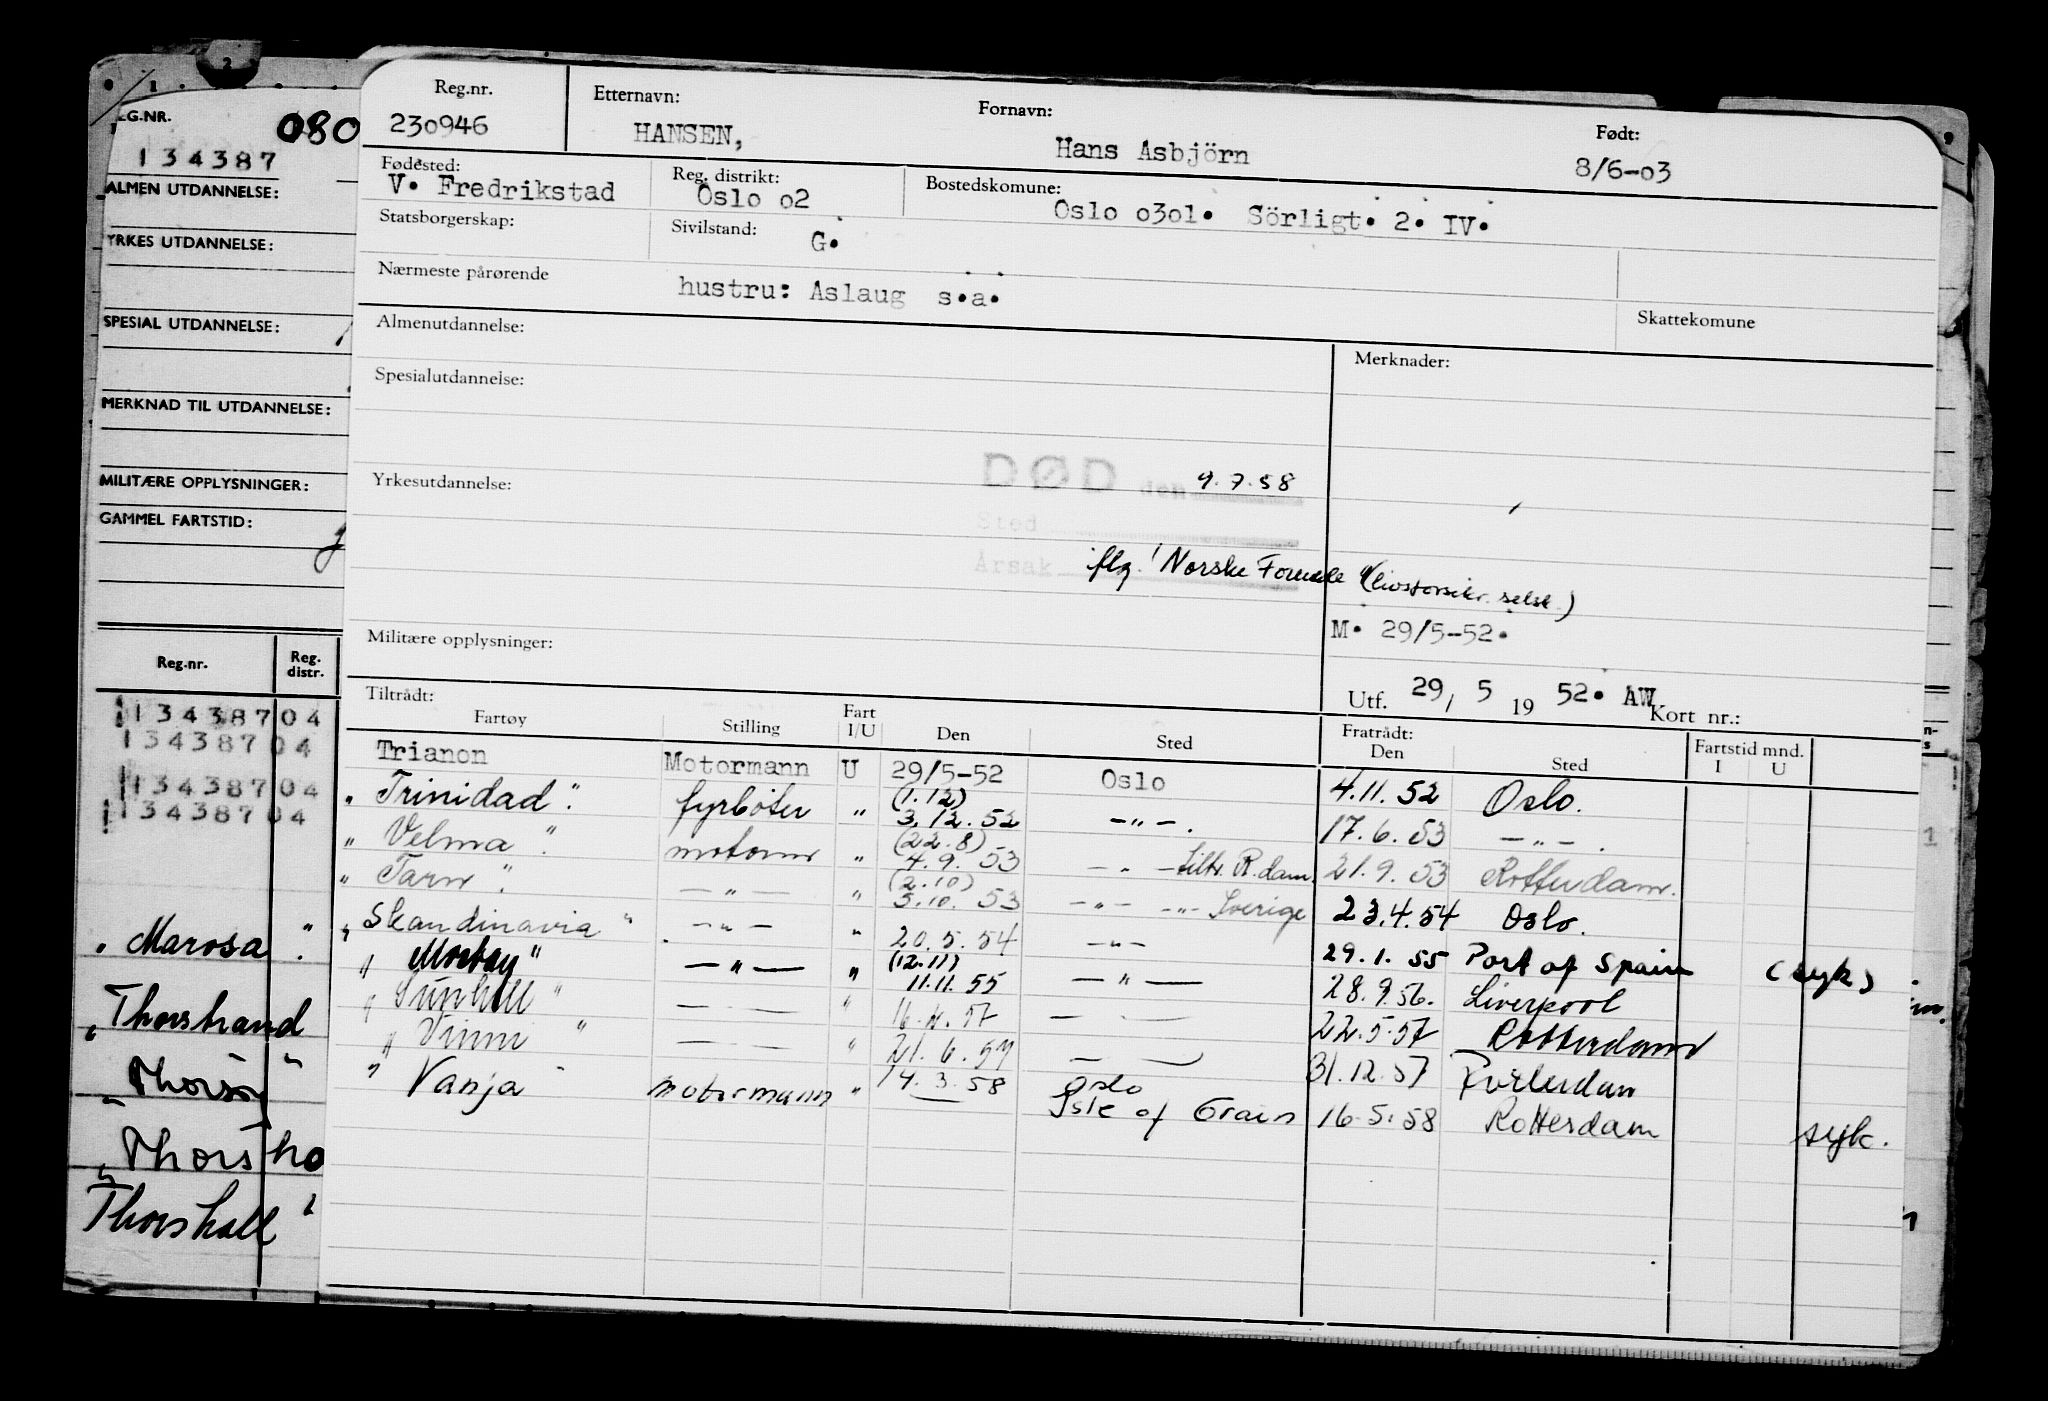 Reg.nr. Etternavn: Fornavn: Født:
230946 HANSEN, Hans Asbjörn 8/6-03
Fødested: Reg. distrikt: Bostedskomune:
V. Fredrikstad Oslo o2 Oslo o3o1. Sörligt. 2. IV.
Statsborgerskap: Sivilstand: G.
Nærmeste pårørende hustru: Aslaug s.a.
Skattekomune
Almenutdannelse: Merknader:
Spesialutdannelse:
Yrkesutdannelse: DØD den 9.7.58
Sted
Årsak iflg. "Norske Forende" (livsforsikr. selsk.)
M. 29/5-52.
Militære opplysninger:
Utf. 29/ 5 19 52. AW Kort nr.:
Tiltrådt: Fratrådt: Fartstid mnd.
Fartøy Stilling Fart I/U Den Sted Den Sted I U
Trianon Motormann U 29/5-52 Oslo 4.11.52 Oslo.
"Trinidad". fyrböter " (1.12) 3.12.52 -"-. 17.6.53 -"-.
"Velma". motorm " (22.8) 4.9.53 -"- tiltr. R.dam. 21.9.53 Rotterdam.
"Tarn". -"- " (2.10) 5.10.53 -"- -"- Sverige 23.4.54 Oslo.
"Skandinavia" -"- " 20.5.54 -"- 29.1.55 Port of Spain (syk)
" " -"- " (12.11) 11.11.55 -"- 28.9.56. Liverpool
"Sunhill" — — " 16.4.57 — — 22.5.57 Rotterdam
"Vinni" — — " 21.6.57 — — 31.12.57 Rotterdam
"Vanja" motormann " 14.3.58 Oslo
Isle of Grain 16.5.58 Rotterdam syk.
2
1
EG.NR. 080
134387
ALMEN UTDANNELSE:
YRKES UTDANNELSE:
SPESIAL UTDANNELSE:
MERKNAD TIL UTDANNELSE:
MILITÆRE OPPLYSNINGER:
GAMMEL FARTSTID:
Reg.nr. Reg. distr.
134387 04
134387 04
134387 04
134387 04
"Marosa".
"Thorstrand"
"Thorsøy
"Thorsho
Thorshall"